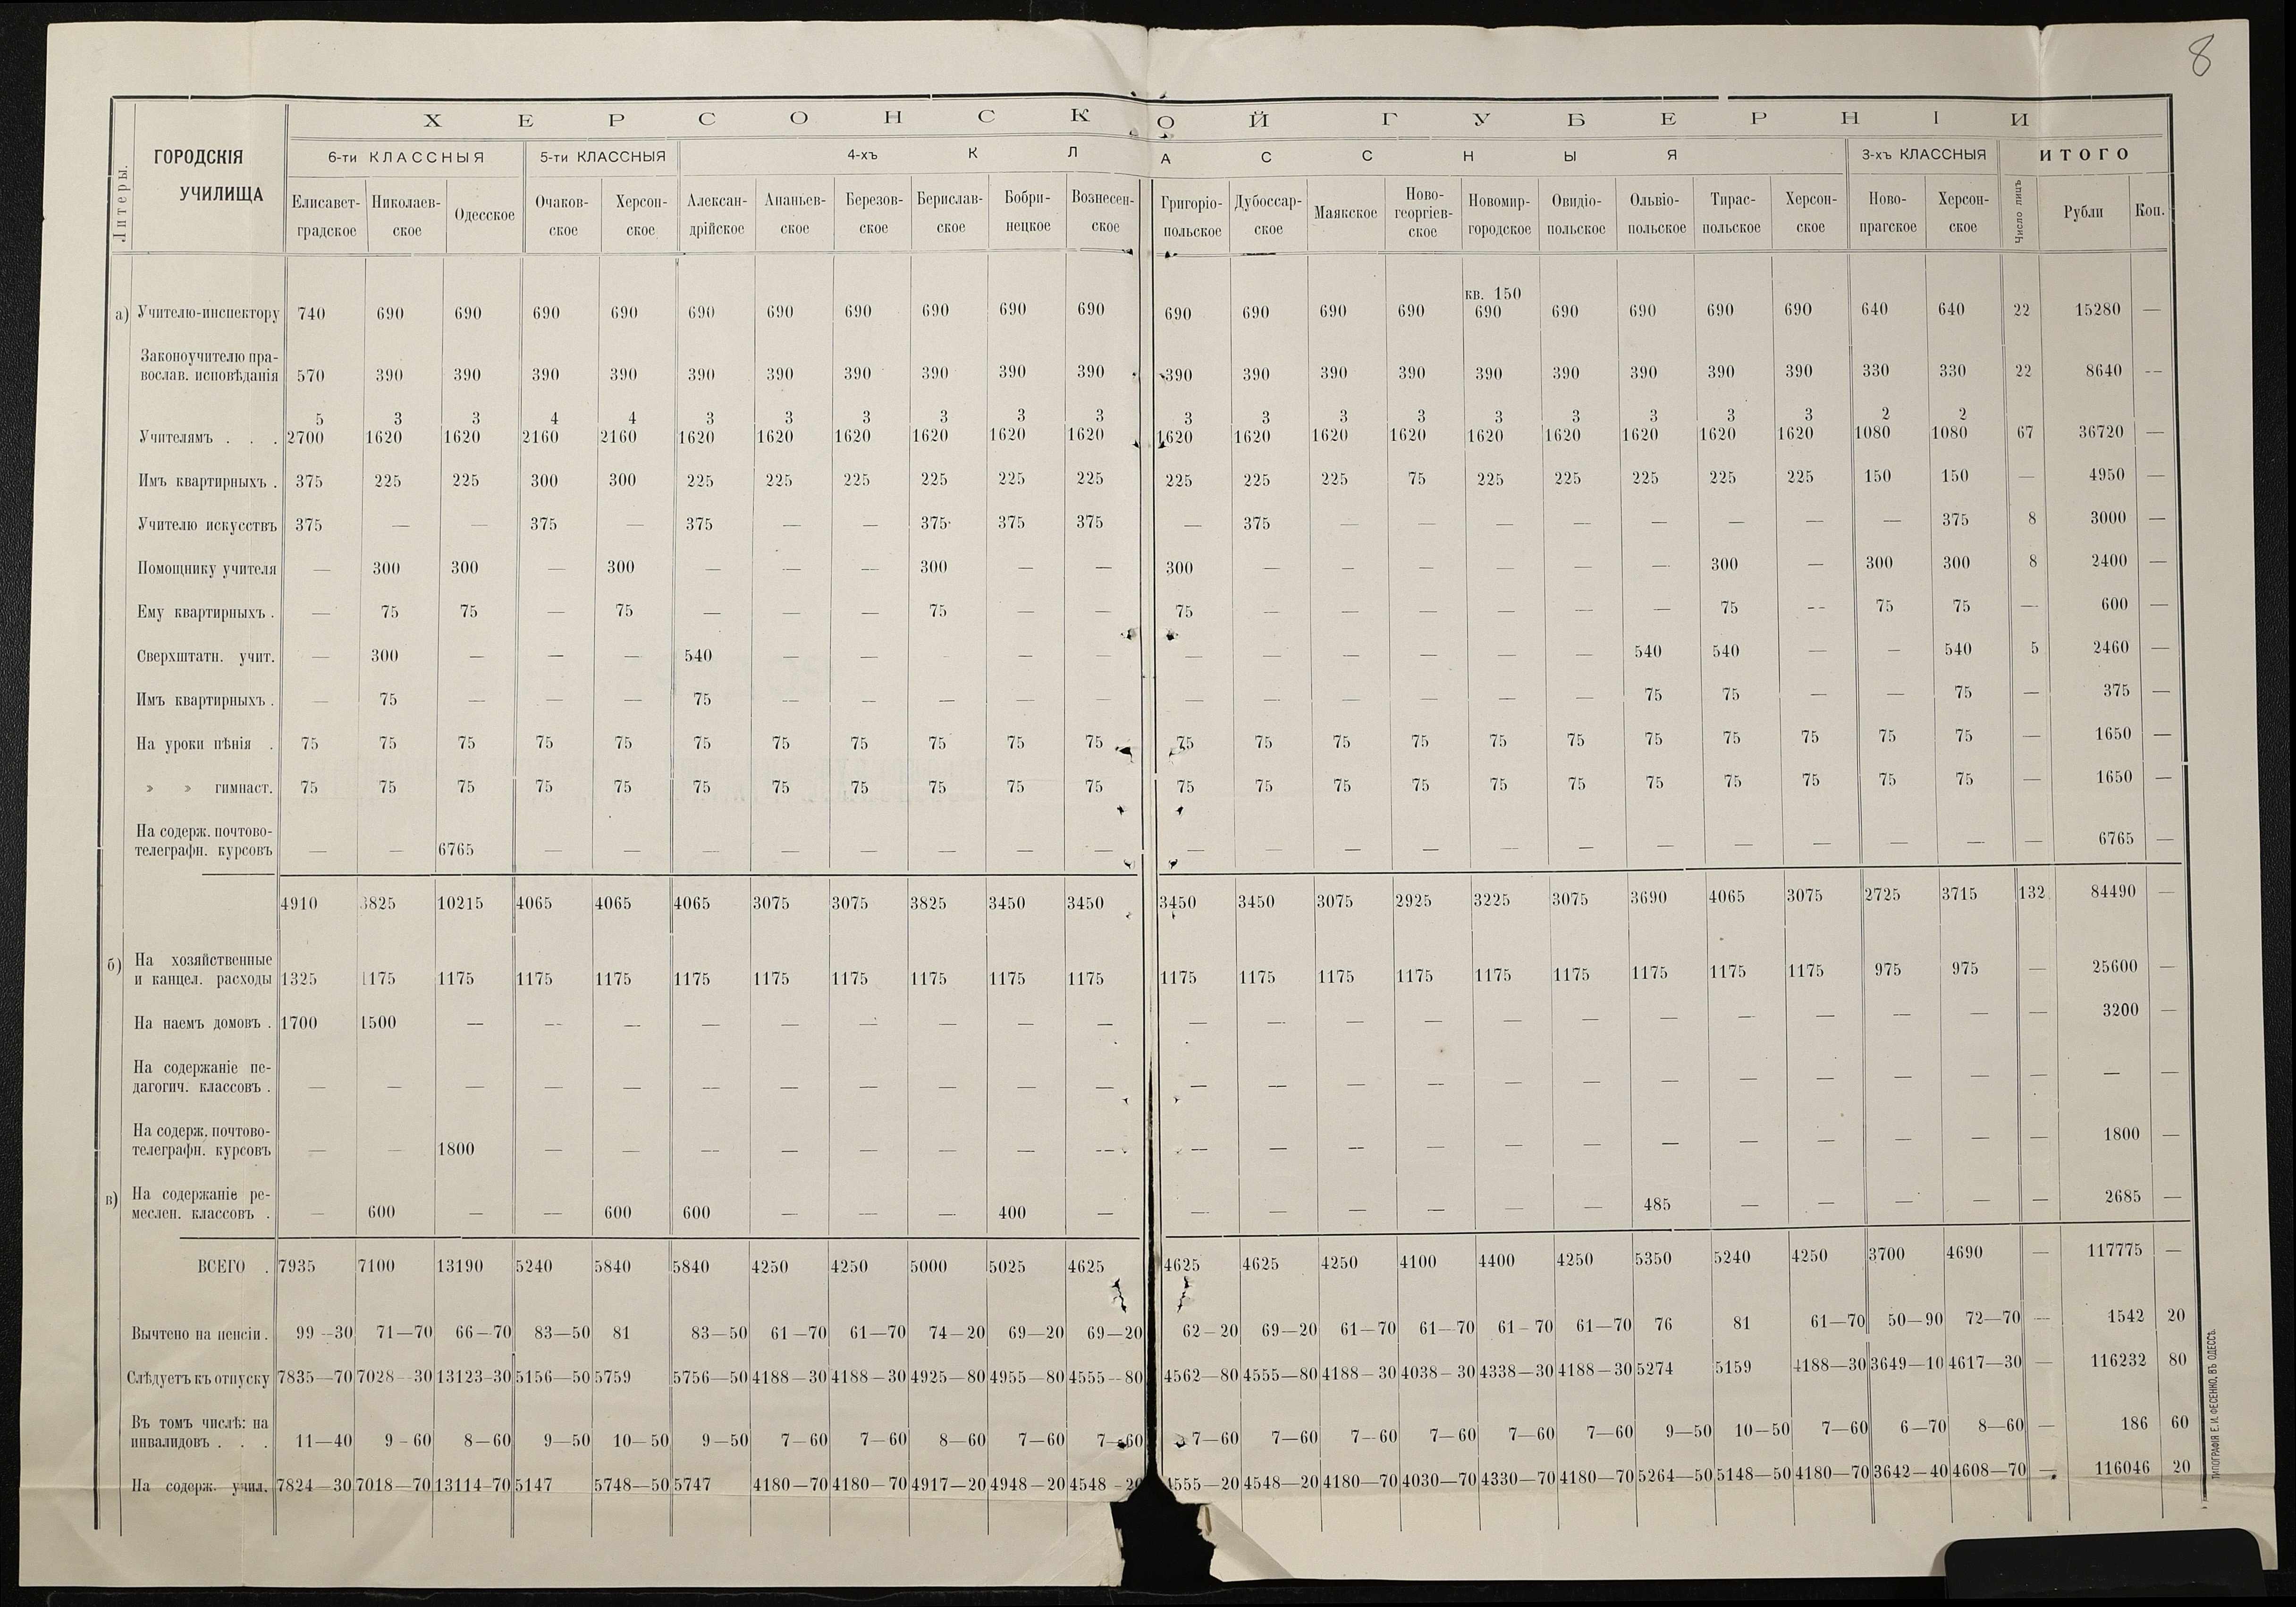 8
ХЕРСОНСКОЙ ГУБЕРНІИ
Литеры. ГОРОДСКІЯ УЧИЛИЩА 6-ти КЛАССНЫЯ 5-ти КЛАССНЫЯ 4-хъ КЛАССНЫЯ 3-хъ КЛАССНЫЯ ИТОГО
Елисавет-градское Николаев-ское Одесское Очаков-ское Херсон-ское Алексан-дрійское Ананьев-ское Березов-ское Берислав-ское Бобри-нецкое Вознесен-ское Григоріо-польское Дубоссар-ское Маякское Ново-георгіев-ское Новомир-городское Овидіо-польское Ольвіо-польское Тирас-польское Херсон-ское Ново-прагское Херсон-ское Число лицъ Рубли Коп.
кв. 150
а) Учителю-инспектору 740 690 690 690 690 690 690 690 690 690 690 690 690 690 690 690 690 690 690 690 640 640 22 15280 —
Законоучителю пра-
вослав. исповѣданія 570 390 390 390 390 390 390 390 390 390 390 390 390 390 390 390 390 390 390 390 330 330 22 8640 —
5 3 3 4 4 3 3 3 3 3 3 3 3 3 3 3 3 3 3 3 2 2
Учителямъ . . . 2700 1620 1620 2160 2160 1620 1620 1620 1620 1620 1620 1620 1620 1620 1620 1620 1620 1620 1620 1620 1080 1080 67 36720 —
Имъ квартирныхъ . 375 225 225 300 300 225 225 225 225 225 225 225 225 225 75 225 225 225 225 225 150 150 — 4950 —
Учителю искусствъ 375 — — 375 — 375 — — 375 375 375 — 375 — — — — — — — — 375 8 3000 —
Помощнику учителя — 300 300 — 300 — — — 300 — — 300 — — — — — — 300 — 300 300 8 2400 —
Ему квартирныхъ . — 75 75 — 75 — — — 75 — — 75 — — — — — — 75 — 75 75 — 600 —
Сверхштатн. учит. — 300 — — — 540 — — — — — — — — — — — 540 540 — — 540 5 2460 —
Имъ квартирныхъ . — 75 — — — 75 — — — — — — — — — — — 75 75 — — 75 — 375 —
На уроки пѣнія . 75 75 75 75 75 75 75 75 75 75 75 75 75 75 75 75 75 75 75 75 75 75 — 1650 —
» » гимнаст. 75 75 75 75 75 75 75 75 75 75 75 75 75 75 75 75 75 75 75 75 75 75 — 1650 —
На содерж. почтово-
телеграфн. курсовъ — — 6765 — — — — — — — — — — — — — — — — — — — — 6765 —
4910 3825 10215 4065 4065 4065 3075 3075 3825 3450 3450 3450 3450 3075 2925 3225 3075 3690 4065 3075 2725 3715 132 84490 —
б) На хозяйственные
и канцел. расходы 1325 1175 1175 1175 1175 1175 1175 1175 1175 1175 1175 1175 1175 1175 1175 1175 1175 1175 1175 1175 975 975 — 25600 —
На наемъ домовъ . 1700 1500 — — — — — — — — — — — — — — — — — — — — — 3200 —
На содержаніе пе-
дагогич. классовъ . — — — — — — — — — — — — — — — — — — — — — — — — —
На содерж. почтово-
телеграфн. курсовъ — — 1800 — — — — — — — — — — — — — — — — — — — — 1800 —
в) На содержаніе ре-
меслен. классовъ . — 600 — — 600 600 — — — 400 — — — — — — — 485 — — — — — 2685 —
ВСЕГО . 7935 7100 13190 5240 5840 5840 4250 4250 5000 5025 4625 4625 4625 4250 4100 4400 4250 5350 5240 4250 3700 4690 — 117775 —
Вычтено на пенсіи . 99—30 71—70 66—70 83—50 81 83—50 61—70 61—70 74—20 69—20 69—20 62—20 69—20 61—70 61—70 61—70 61—70 76 81 61—70 50—90 72—70 — 1542 20
Слѣдуетъ къ отпуску 7835—70 7028—30 13123—30 5156—50 5759 5756—50 4188—30 4188—30 4925—80 4955—80 4555—80 4562—80 4555—80 4188—30 4038—30 4338—30 4188—30 5274 5159 4188—30 3649—10 4617—30 — 116232 80
Въ томъ числѣ: на
инвалидовъ . . . 11—40 9—60 8—60 9—50 10—50 9—50 7—60 7—60 8—60 7—60 7—60 7—60 7—60 7—60 7—60 7—60 7—60 9—50 10—50 7—60 6—70 8—60 — 186 60
На содерж. учил. 7824—30 7018—70 13114—70 5147 5748—50 5747 4180—70 4180—70 4917—20 4948—20 4548—20 4555—20 4548—20 4180—70 4030—70 4330—70 4180—70 5264—50 5148—50 4180—70 3642—40 4608—70 — 116046 20
ТИПОГРАФІЯ Е. И. ФЕСЕНКО, ВЪ ОДЕССѢ.